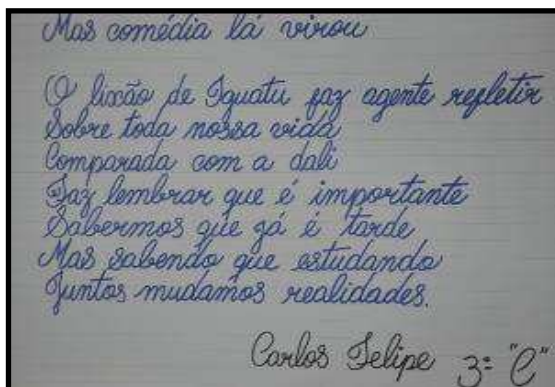 Mas comédia lá virou
O lixão de Iguatu faz agente refletir
Sobre toda nossa vida
Comparada com a dali
Faz lembrar que é importante
Sabermos que já é tarde
Mas sabendo que estudando
Juntos mudamos realidades.
Carlos Felipe 3º "C"